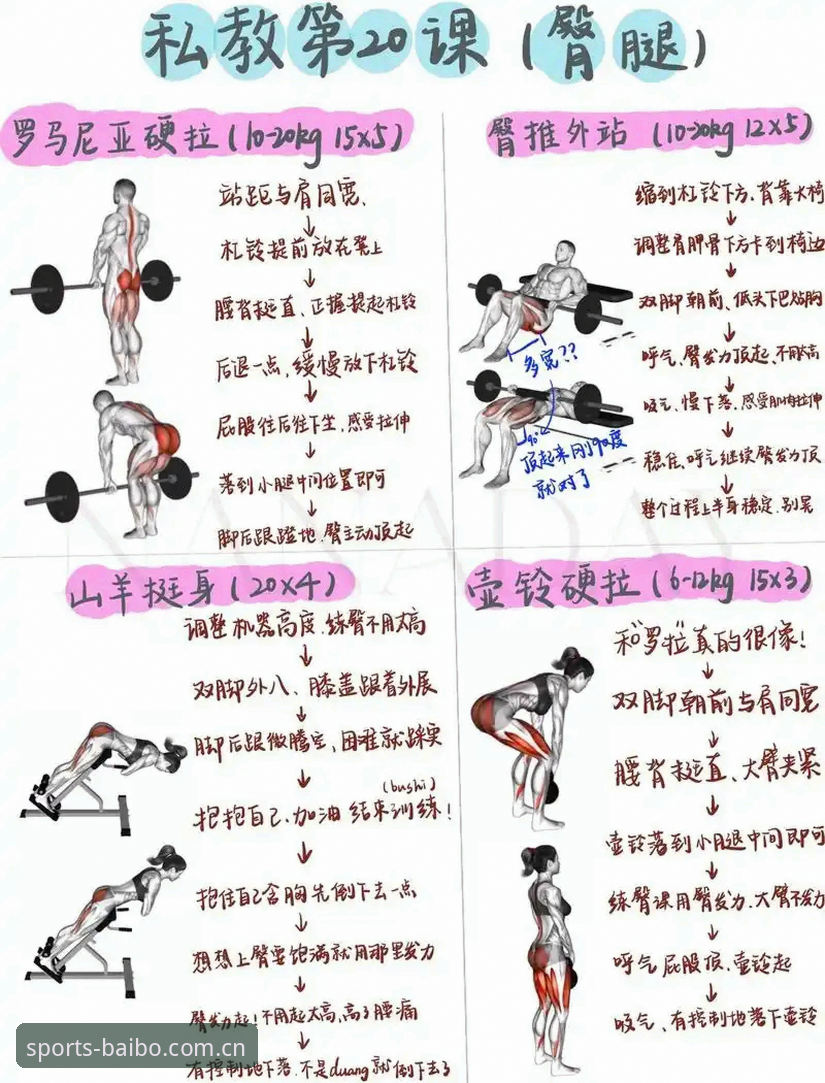 私教第20课(臀腿)
罗马尼亚硬拉(10-20kg 15x5)
站距与肩同宽、
↓
杠铃提前放在凳上
↓
腰背挺直、正握提起杠铃
↓
后退一点,缓慢放下杠铃
↓
屁股往后往下坐,感受拉伸
↓
落到小腿中间位置即可
↓
脚后跟蹬地、臀主动顶起
臀推外站 (10-20kg 12x5)
缩到杠铃下方、背靠大椅
↓
调整肩胛骨下方卡到椅边
↓
双脚朝前、低头下巴贴胸
↓
呼气、臀发力顶起、不用太高
↓
吸气、慢下落、感受肌肉拉伸
↓
稳住、呼气继续臀发力顶
↓
整个过程上半身稳定、别晃
多宽??
90°
顶起来刚90度
就对了
山羊挺身(20x4)
调整机器高度、练臀不用太高
↓
双脚外八、膝盖跟着外展
↓
脚后跟微腾空、困难就踩实
↓
(bushi)
抱抱自己、加油 结束训练!
↓
抱住自己含胸先倒下去一点
↓
想想上臀要饱满就用那里发力
↓
臀发力起!不用起太高,高了腰痛
↓
有控制地下落、不是duang就倒下去了
壶铃硬拉(6-12kg 15x3)
和“罗拉”真的很像!
↓
双脚朝前与肩同宽
↓
腰背挺直、大臂夹紧
↓
壶铃落到小腿中间即可
↓
练臀课用臀发力、大臂不发力
↓
呼气屁股顶、壶铃起
↓
吸气、有控制地落下壶铃
NANADAY
sports-baibo.com.cn